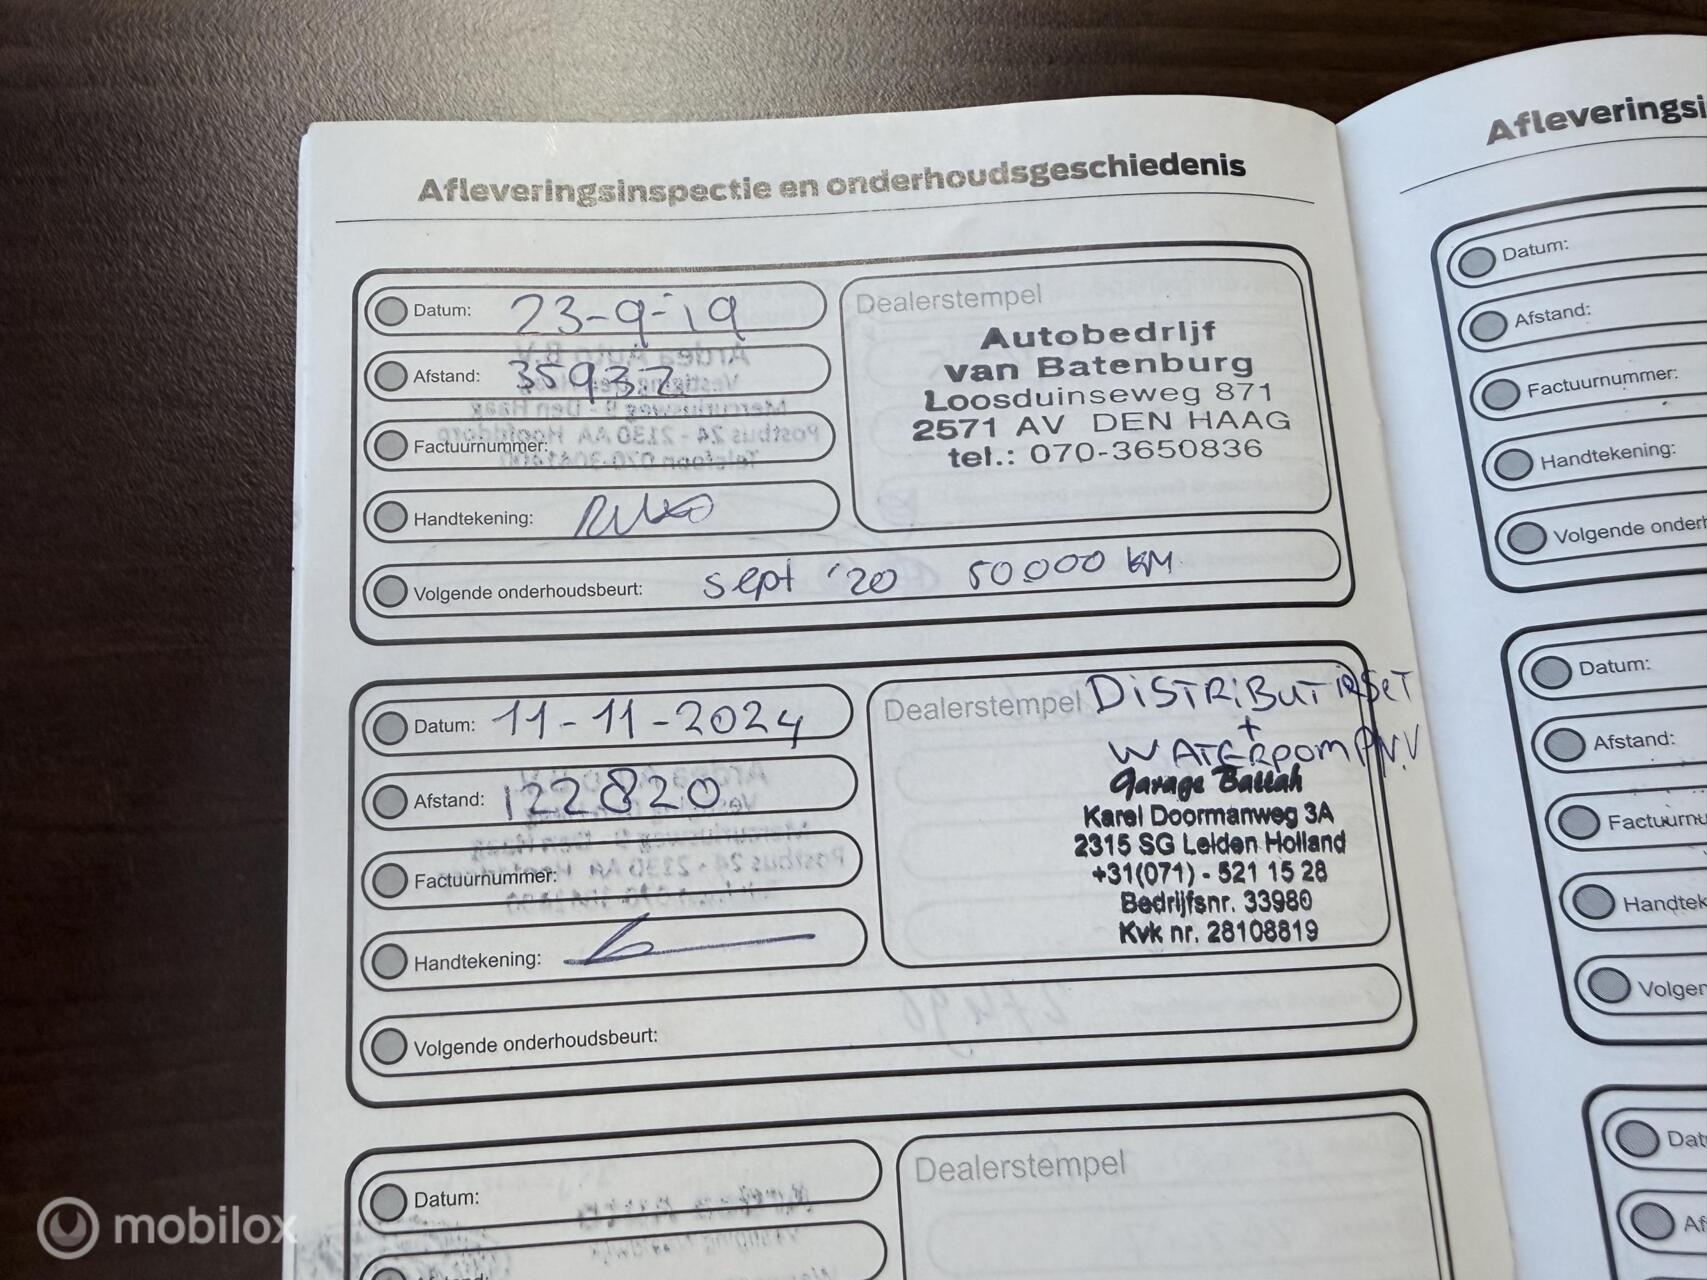 Afleveringsinspectie en onderhoudsgeschiedenis
Datum: 23-9-19
Afstand: 35937
Factuurnummer:
Handtekening:
Volgende onderhoudsbeurt: sept '20 50.000 KM
Dealerstempel
Autobedrijf
van Batenburg
Loosduinseweg 871
2571 AV DEN HAAG
tel.: 070-3650836
Datum: 11-11-2024
Afstand: 122820
Factuurnummer:
Handtekening:
Volgende onderhoudsbeurt:
Dealerstempel DISTRIBUTIESET
+
WATERPOMP N.V
Garage Ballah
Karel Doormanweg 3A
2315 SG Leiden Holland
+31(071) - 521 15 28
Bedrijfsnr. 33980
Kvk nr. 28108819
Datum:
Dealerstempel
Afleveringsi
Datum:
Afstand:
Factuurnummer:
Handtekening:
Volgende onderh
Datum:
Afstand:
Factuurnu
Handtek
Volgen
Dat
Af
mobilox